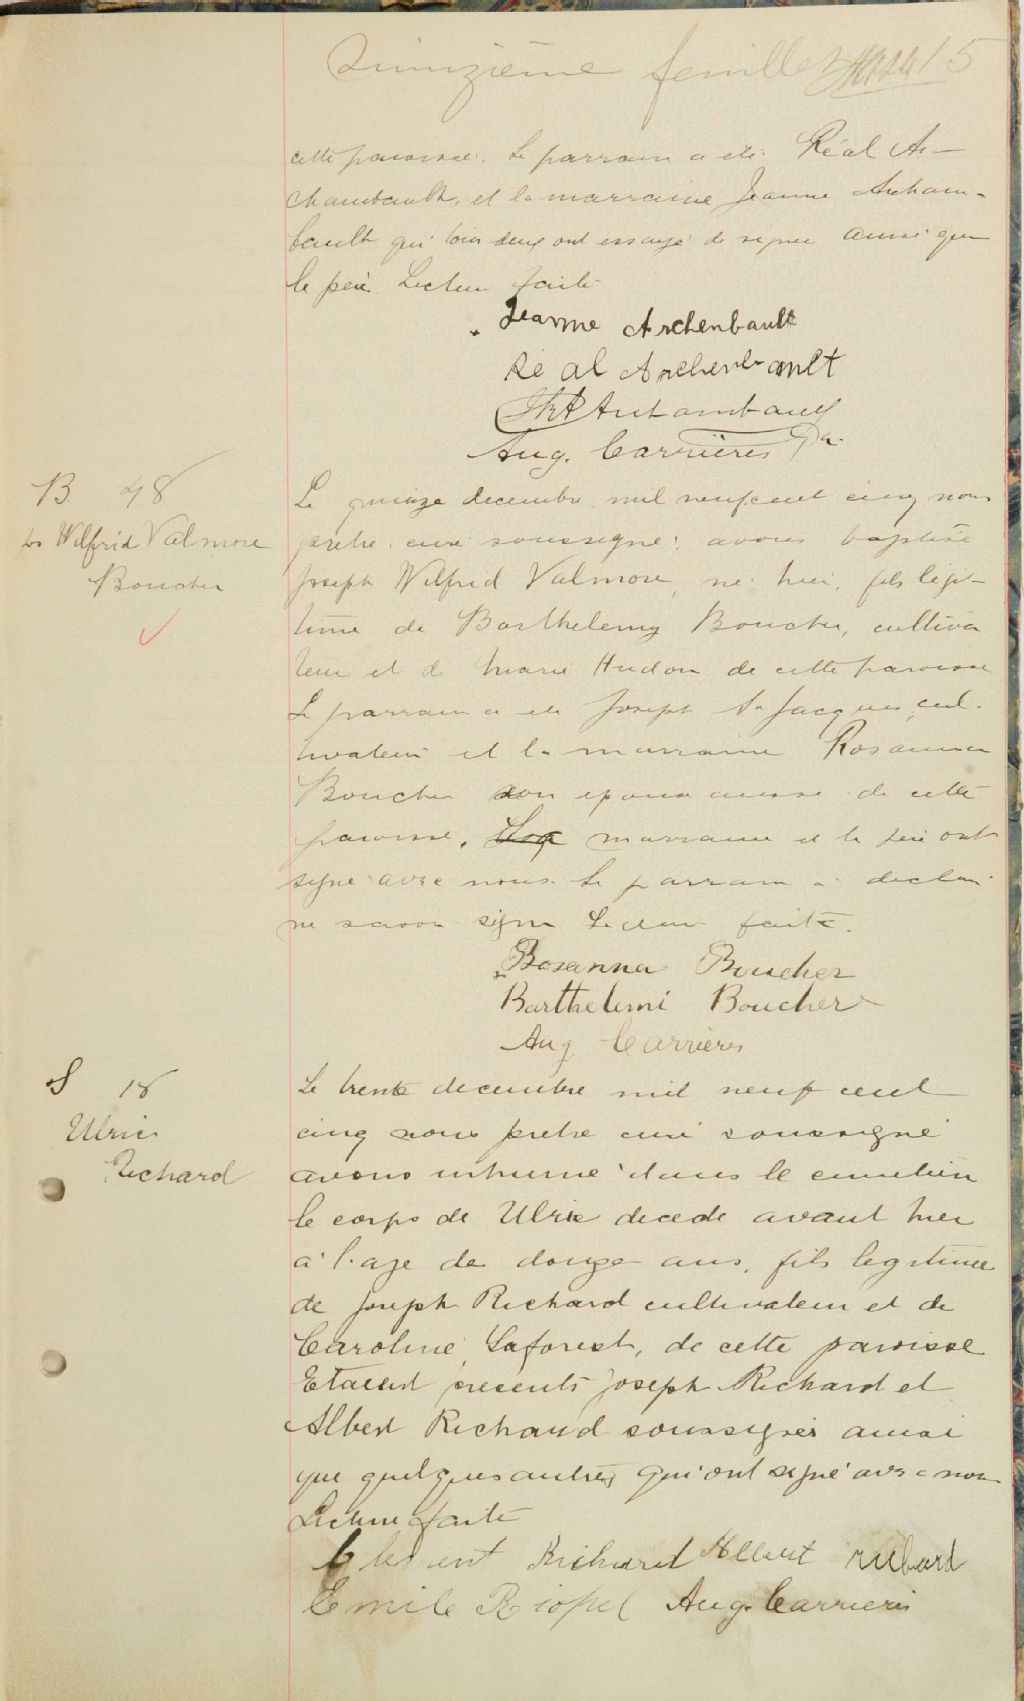 Quinzième feuillet 15
cette paroisse. Le parrain a été Réal Ar-
chambault, et la marraine Jeanne Archam-
bault qui tous deux ont essayé de signer ainsi que
le père. Lecture faite
Jeanne Archenbault
Ré al Archenbault
Archambault
Aug. Carrières Ptr.
B 48
Jos Wilfrid Valmore
Boucher
Le quinze decembre mil neuf cent cinq nous
prêtre curé soussigné avons baptisé
Joseph Wilfrid Valmore, né hier, fils légi-
time de Barthelemy Boucher, cultiva
teur et de Marie Hudon de cette paroisse
Le parrain a été Joseph St Jacques, cul-
tivateur et la marraine Rosanna
Boucher son epouse aussi de cette
paroisse. marraine et le père ont
signé avec nous. Le parrain a declaré
ne savoir signer Lecture faite.
Rosanna Boucher
Barthelemi Boucher
Aug. Carrières
S 18
Ulric
Richard
Le trente decembre mil neuf cent
cinq nous prêtre curé soussigné
avons inhumé dans le cimetière
le corps de Ulric decede avant hier
a l'age de douze ans, fils legitime
de Joseph Richard cultivateur et de
Caroline Laforest, de cette paroisse
Etaient présents Joseph Richard et
Albert Richard soussignés ainsi
que quelques autres qui ont signé avec nous
Lecture faite
Richard Albert richard
Emile Riopel Aug. Carrieres